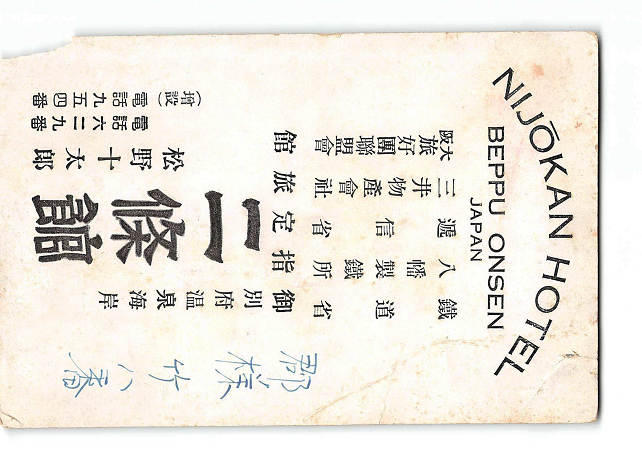 NIJŌKAN HOTEL
BEPPU ONSEN
JAPAN
鐵道省
八幡製鐵所
遞信省
三井物產會社
大阪旅好團聯盟會
御指定旅館
別府温泉海岸
二條館
松野十太郎
電話六二九番
(增設)電話九五四番